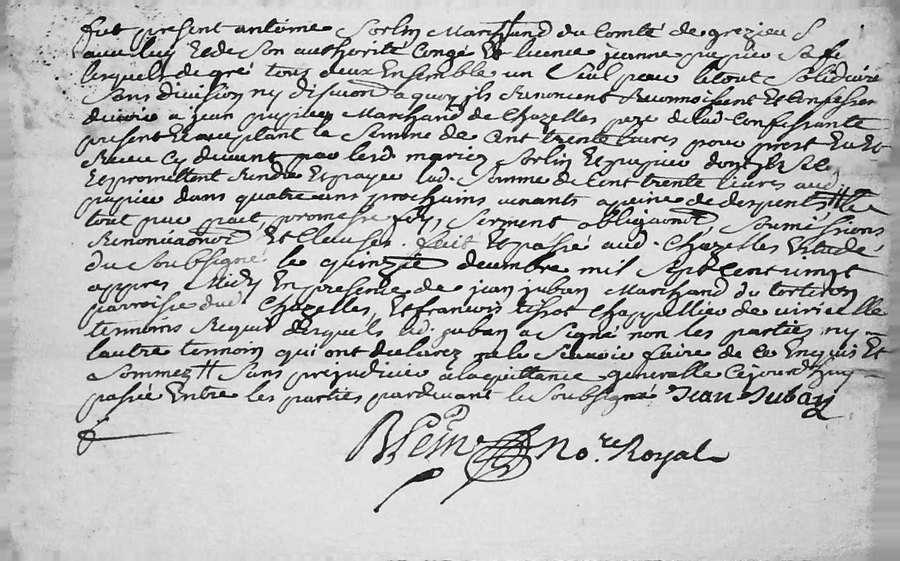 fut present antoine Sorlin Marchand du Comté de grezieu &
avec luy Et de Son authorité Congé Et licence jeanne pupier Sa fe
lesquels de gré tous deux Ensemble un Seul pour le tout Solidaire
Sans division ny discution a quoy ils Renoncent Reconnoissent Et Confessent
devoir a jean pupier Marchand de Chazelles pere de lad. Confessante
present Et acceptant la Somme de Cent trente livres pour prest En
Receu Cy devant par lesd. mariez Sorlin Et pupier dont ils
Et promettent Rendre Et payer lad. Somme de Cent trente livres aud
pupier dans quatre ans prochains venants a peine de despents
tout par pact, promesse foy, Serment obligaons Soumissions
Renonciaons Et Clauses. fait Et passé aud. Chazelles Estude
du Soubsigné le quinzie decembre mil Sept Cent vingt
appres Midy En presence de jean juban Marchand du
parroisse dud Chazelles, Et francois tisot Chappellier de
temoins Requis desquels led. juban a Signé non les parties ny
lautre temoin qui ont declarez ne le Scavoir faire de Ce Enquis Et
Sommez # Sans prejudice a la quittance generalle Cejourdhuy
passée Entre les parties pardevant le Soubsigné Jean Juban
No.re Royal